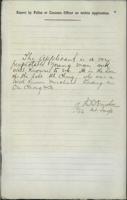 Report by Police or Customs Officer on within Application.
The Applicant is a very
respectable young man and
well known to me. He is the son
of the late Ah Ching who was a
well known merchant trading as
On Chong &Co